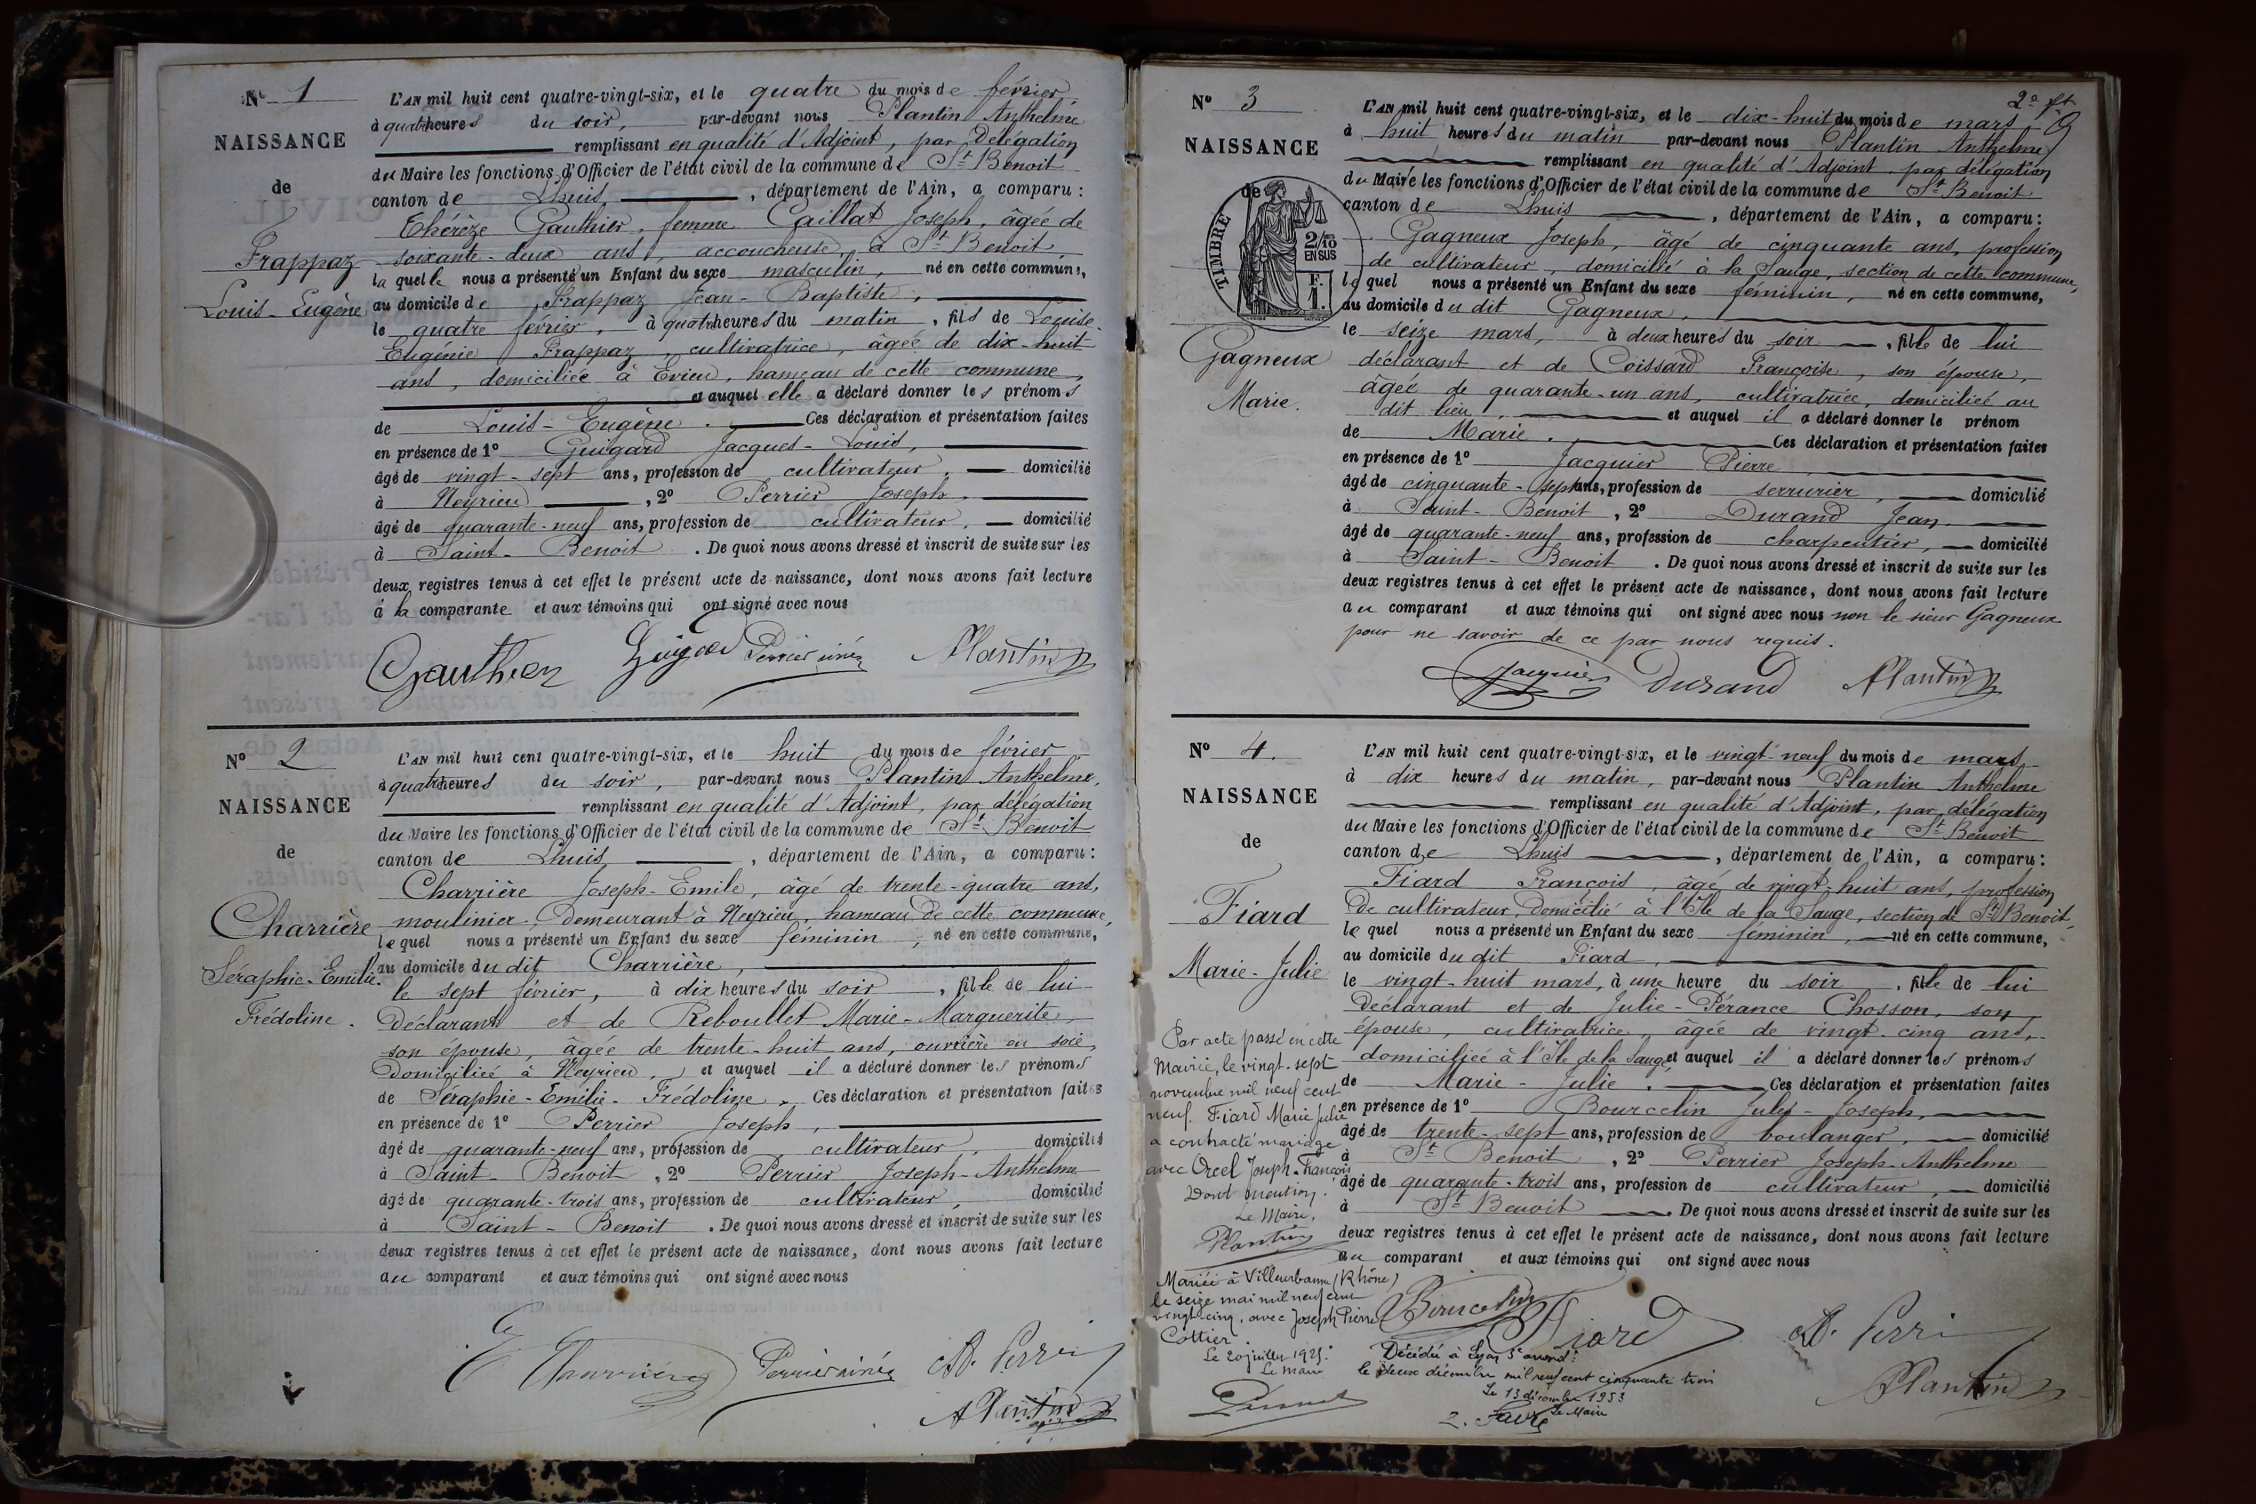 N° 1
NAISSANCE
de
Frappaz
Louis-Eugène
L'AN mil huit cent quatre-vingt-six, et le quatre du mois de février
à quatre heures du soir, par-devant nous Plantin Anthelme
remplissant en qualité d'Adjoint, par Délégation
du Maire les fonctions d'Officier de l'état civil de la commune de St Benoit
canton de Lhuis, département de l'Ain, a comparu :
Thérèze Gauthier, femme Caillat Joseph, âgée de
soixante-deux ans, accoucheuse, à St Benoit
la quelle nous a présenté un Enfant du sexe masculin, né en cette commune,
au domicile de Frappaz Jean-Baptiste,
le quatre février, à quatre heures du matin, fils de Louise-
Eugénie Frappaz, cultivatrice, âgée de dix-huit
ans, domiciliée à Evieu, hameau de cette commune,
et auquel elle a déclaré donner les prénoms
de Louis-Eugène. Ces déclaration et présentation faites
en présence de 1° Guigard Jacques-Louis,
âgé de vingt-sept ans, profession de cultivateur, domicilié
à Neyrieu, 2° Perrier Joseph,
âgé de quarante-neuf ans, profession de cultivateur, domicilié
à Saint-Benoit. De quoi nous avons dressé et inscrit de suite sur les
deux registres tenus à cet effet le présent acte de naissance, dont nous avons fait lecture
à la comparante et aux témoins qui ont signé avec nous
Gauthier Guigard Perrier ainé APlantin
N° 2
NAISSANCE
de
Charrière
Séraphie-Emilie-
Frédoline.
L'AN mil huit cent quatre-vingt-six, et le huit du mois de février
à quatre heures du soir, par-devant nous Plantin Anthelme,
remplissant en qualité d'Adjoint, par délégation
du Maire les fonctions d'Officier de l'état civil de la commune de St Benoit
canton de Lhuis, département de l'Ain, a comparu :
Charrière Joseph-Emile, âgé de trente-quatre ans,
moulinier, Demeurant à Neyrieu, hameau de cette commune,
lequel nous a présenté un Enfant du sexe féminin, né en cette commune,
au domicile du dit Charrière,
le sept février, à dix heures du soir, fille de lui
Déclarant et de Reboullet Marie-Marguerite,
son épouse, âgée de trente-huit ans, ouvrière en soie,
Domiciliée à Neyrieu, et auquel il a déclaré donner les prénoms
de Séraphie-Emilie-Frédoline. Ces déclaration et présentation faites
en présence de 1° Perrier Joseph,
âgé de quarante-neuf ans, profession de cultivateur, domicilié
à Saint-Benoit, 2° Perrier Joseph-Anthelme
âgé de quarante-trois ans, profession de cultivateur, domicilié
à Saint-Benoit. De quoi nous avons dressé et inscrit de suite sur les
deux registres tenus à cet effet le présent acte de naissance, dont nous avons fait lecture
au comparant et aux témoins qui ont signé avec nous
E Charrière Perrier ainé A. Perri
APlantin
2e ft
N° 3
NAISSANCE
de
TIMBRE
2/10
EN SUS
F.
1.
Gagneux
Marie.
L'AN mil huit cent quatre-vingt-six, et le dix-huit du mois de mars
à huit heures du matin par-devant nous Plantin Anthelme
remplissant en qualité d'Adjoint par délégation
du Maire les fonctions d'Officier de l'état civil de la commune de St Benoit
canton de Lhuis, département de l'Ain, a comparu :
Gagneux Joseph, âgé de cinquante ans, profession
de cultivateur, domicilié à la Sauge, section de cette commune,
le quel nous a présenté un Enfant du sexe féminin, né en cette commune,
au domicile du dit Gagneux,
le seize mars, à deux heures du soir, fille de lui
déclarant et de Coissard Françoise, son épouse,
âgée de quarante-un ans, cultivatrice, domiciliée au
dit lieu, et auquel il a déclaré donner le prénom
de Marie. Ces déclaration et présentation faites
en présence de 1° Jacquier Pierre
âgé de cinquante-sept ans, profession de serrurier, domicilié
à Saint-Benoit, 2° Durand Jean
âgé de quarante-neuf ans, profession de charpentier, domicilié
à Saint-Benoit. De quoi nous avons dressé et inscrit de suite sur les
deux registres tenus à cet effet le présent acte de naissance, dont nous avons fait lecture
au comparant et aux témoins qui ont signé avec nous non le sieur Gagneux
pour ne savoir de ce par nous requis.
Jacquier Durand APlantin
N° 4.
NAISSANCE
de
Fiard
Marie-Julie
L'AN mil huit cent quatre-vingt-six, et le vingt-neuf du mois de mars,
à dix heures du matin, par-devant nous Plantin Anthelme
remplissant en qualité d'Adjoint, par délégation
du Maire les fonctions d'Officier de l'état civil de la commune de St Benoit
canton de Lhuis, département de l'Ain, a comparu :
Fiard François, âgé de vingt-huit ans, profession
De cultivateur, Domicilié à l'Ile de la Sauge, section de St Benoit,
le quel nous a présenté un Enfant du sexe féminin, né en cette commune,
au domicile du dit Fiard,
le vingt-huit mars, à une heure du soir, fille de lui
Déclarant et de Julie-Pérance Chosson, son
épouse, cultivatrice, âgée de vingt-cinq ans,
domiciliée à l'Ile de la Sauge, et auquel il a déclaré donner les prénoms
de Marie-Julie. Ces déclaration et présentation faites
en présence de 1° Bourcelin Jules-Joseph,
âgé de trente-sept ans, profession de boulanger, domicilié
à St Benoit, 2° Perrier Joseph-Anthelme
âgé de quarante-trois ans, profession de cultivateur, domicilié
à St Benoit. De quoi nous avons dressé et inscrit de suite sur les
deux registres tenus à cet effet le présent acte de naissance, dont nous avons fait lecture
au comparant et aux témoins qui ont signé avec nous
Bourcelin Fiard A. Perri
APlantin
Par acte passé en cette
Mairie, le vingt-sept
novembre mil neuf cent
neuf. Fiard Marie Julie
a contracté mariage
avec Orcel Joseph-François
Dont mention.
Le Maire,
Plantin
Mariée à Villeurbanne (Rhône)
le seize mai mil neuf cent
vingt cinq, avec Joseph Pierre
Cottier.
Le 20 juillet 1925.
Le Maire
Décédée à Lyon 5e arrondt
le deux décembre mil neuf cent cinquante trois
Le 13 décembre 1953
Le Maire